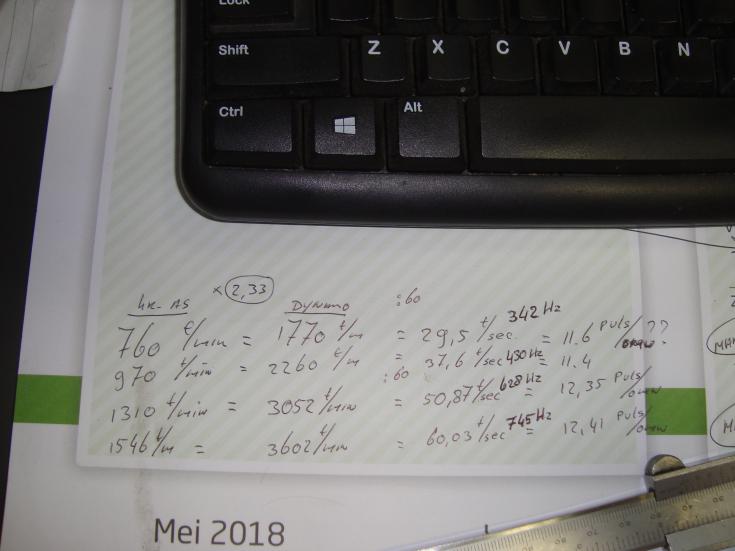 Lock
Shift Z X C V B N
Ctrl Alt
KR-AS × 2,33 DYNAMO :60
760 t/min = 1770 t/m = 29,5 t/sec 342 Hz = 11.6 Puls/omw ??
970 t/min = 2260 t/m = 37,6 t/sec 430 Hz = 11.4
:60
1310 t/min = 3052 t/min = 50,87 t/sec 628 Hz = 12,35 Puls/omw
1546 t/m = 3602 t/min = 60,03 t/sec 745 Hz = 12,41 Puls/omw
Mei 2018